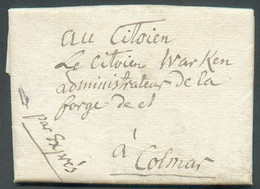 au Citoien
Le citoien Warken
administrateur de la
forge de et
à
Colmar
par Exprés